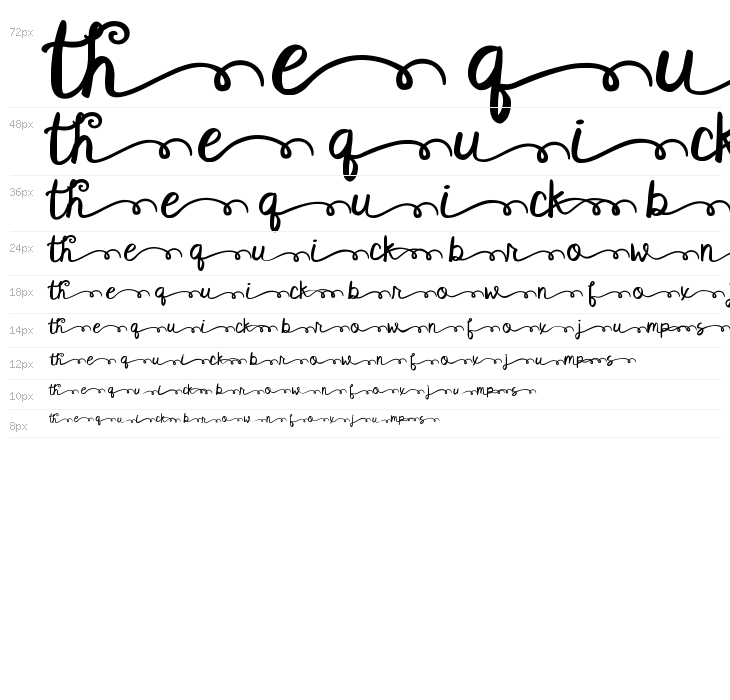 72px the qu
48px the quick
36px the quick b
24px the quick brown
18px the quick brown fox j
14px the quick brown fox jumps
12px the quick brown fox jumps
10px the quick brown fox jumps
8px the quick brown fox jumps